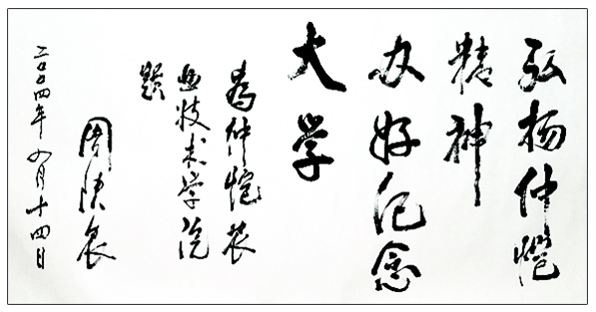 弘扬仲恺
精神
办好纪念
大学
为仲恺农
业技术学院
题
周铁农
二〇〇四年九月十四日